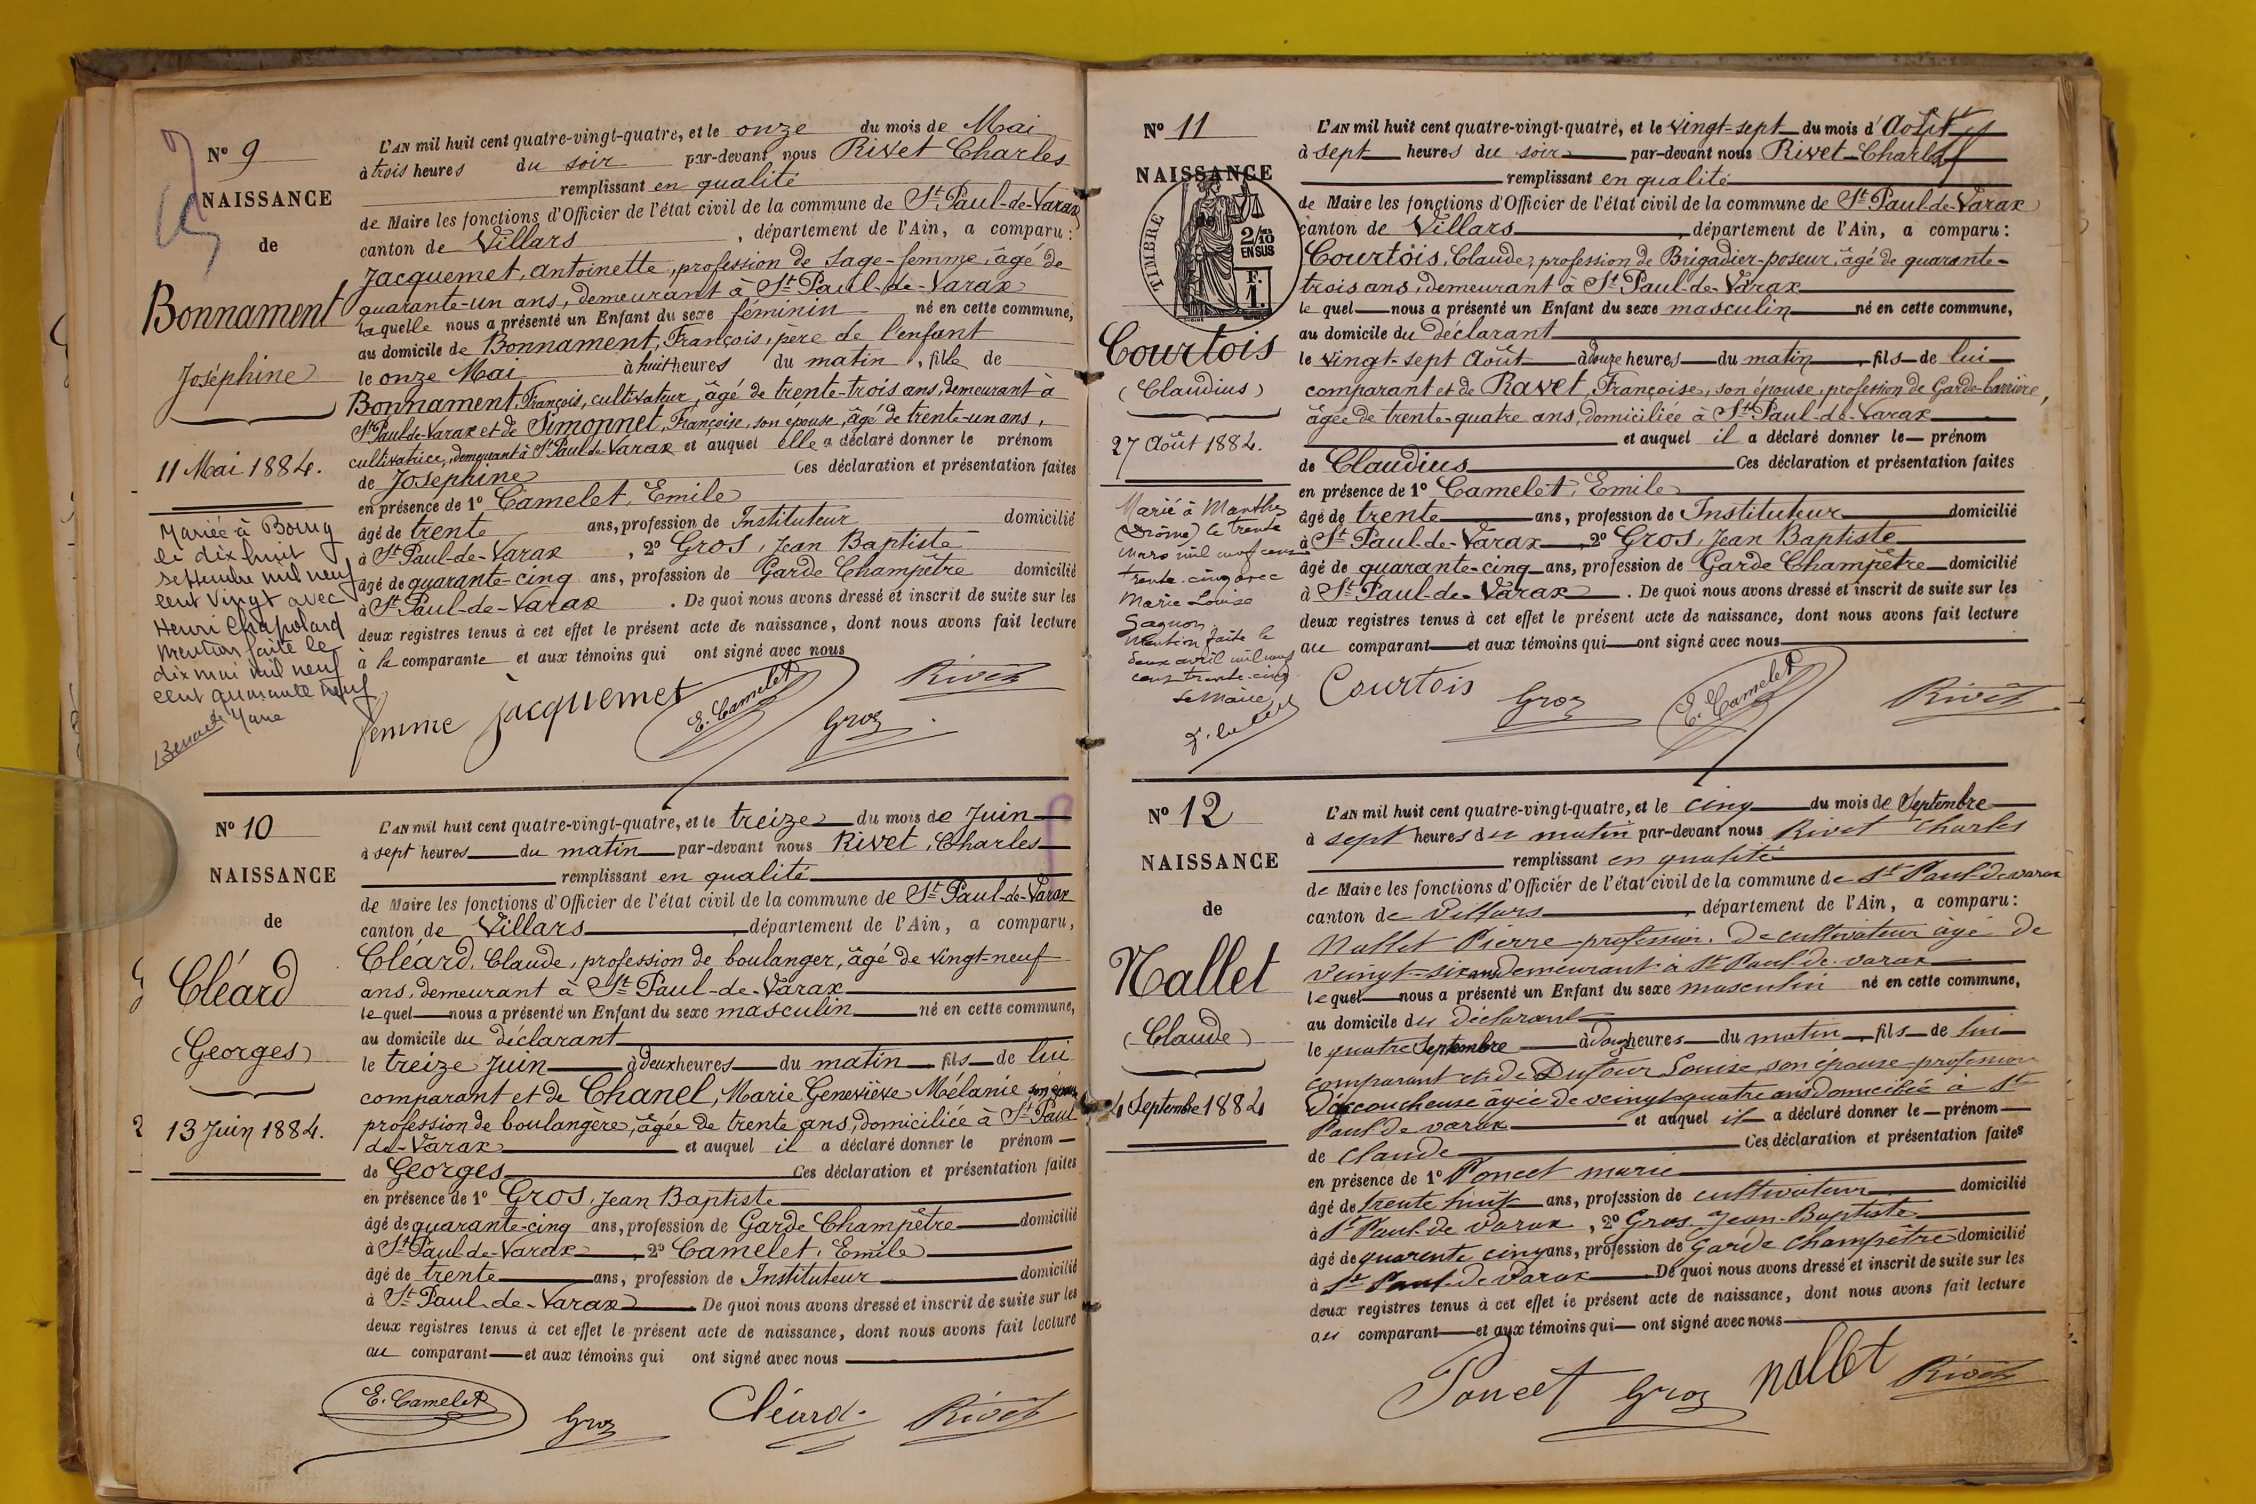 Nº 9
NAISSANCE
de
Bonnament
Joséphine
11 Mai 1884.
Mariée à Bourg
le dix huit
septembre mil neuf
cent vingt avec
Henri Chapoland
mention faite le
dix mai mil neuf
cent quarante neuf
L'AN mil huit cent quatre-vingt-quatre, et le onze du mois de Mai
à trois heures du soir par-devant nous Rivet Charles
remplissant en qualité
de Maire les fonctions d'Officier de l'état civil de la commune de St Paul-de-Varax
canton de Villars, département de l'Ain, a comparu :
Jacquemet, Antoinette, profession de Sage-femme, âgé de
quarante-un ans, demeurant à St Paul-de-Varax
laquelle nous a présenté un Enfant du sexe féminin né en cette commune,
au domicile de Bonnament, François, père de l'enfant
le onze Mai à huit heures du matin, fille de
Bonnament, François, cultivateur, âgé de trente-trois ans, demeurant à
St Paul-de-Varax et de Simonnet, Françoise, son épouse, âgé de trente-un ans,
cultivatrice, demeurant à St Paul-de-Varax et auquel elle a déclaré donner le prénom
de Joséphine Ces déclaration et présentation faites
en présence de 1º Camelet, Emile
âgé de trente ans, profession de Instituteur domicilié
à St Paul-de-Varax, 2º Gros, Jean Baptiste
âgé de quarante-cinq ans, profession de Garde Champêtre domicilié
à St Paul-de-Varax. De quoi nous avons dressé et inscrit de suite sur les
deux registres tenus à cet effet le présent acte de naissance, dont nous avons fait lecture
à la comparante et aux témoins qui ont signé avec nous
femme Jacquemet E. Camelet Gros Rivet
Nº 10
NAISSANCE
de
Cléard
(Georges)
13 Juin 1884.
L'AN mil huit cent quatre-vingt-quatre, et le treize du mois de Juin
à sept heures du matin par-devant nous Rivet, Charles
remplissant en qualité
de Maire les fonctions d'Officier de l'état civil de la commune de St Paul-de-Varax
canton de Villars, département de l'Ain, a comparu,
Cléard, Claude, profession de boulanger, âgé de vingt-neuf
ans, demeurant à St Paul-de-Varax
lequel nous a présenté un Enfant du sexe masculin né en cette commune,
au domicile du déclarant
le treize Juin à deux heures du matin fils de lui
comparant et de Chanel, Marie Geneviève Mélanie son épouse
profession de boulangère, âgée de trente ans, domiciliée à St Paul
de-Varax et auquel il a déclaré donner le prénom
de Georges Ces déclaration et présentation faites
en présence de 1º Gros, Jean Baptiste
âgé de quarante-cinq ans, profession de Garde Champêtre domicilié
à St Paul-de-Varax, 2º Camelet, Emile
âgé de trente ans, profession de Instituteur domicilié
à St Paul-de-Varax. De quoi nous avons dressé et inscrit de suite sur les
deux registres tenus à cet effet le présent acte de naissance, dont nous avons fait lecture
au comparant et aux témoins qui ont signé avec nous
E. Camelet Gros Cléard Rivet
Nº 11
NAISSANCE
de
TIMBRE
2/10 EN SUS
F. 1.
Courtois
(Claudius)
27 Août 1884.
Marié à Manthes
(Drôme) le trente
mars mil neuf cent
trente-cinq avec
Marie Louise
Gagnon
Mention faite le
deux avril mil neuf
cent trente-cinq
Le Maire,
L'AN mil huit cent quatre-vingt-quatre, et le vingt-sept du mois d'Août
à sept heures du soir par-devant nous Rivet Charles
remplissant en qualité
de Maire les fonctions d'Officier de l'état civil de la commune de St Paul-de-Varax
canton de Villars, département de l'Ain, a comparu :
Courtois, Claude, profession de Brigadier-poseur, âgé de quarante-
trois ans, demeurant à St Paul-de-Varax
lequel nous a présenté un Enfant du sexe masculin né en cette commune,
au domicile du déclarant
le vingt-sept Août à douze heures du matin, fils de lui
comparant et de Ravet, Françoise, son épouse, profession de Garde-barrière,
âgée de trente-quatre ans, domiciliée à St Paul-de-Varax
et auquel il a déclaré donner le prénom
de Claudius Ces déclaration et présentation faites
en présence de 1º Camelet, Emile
âgé de trente ans, profession de Instituteur domicilié
à St Paul-de-Varax, 2º Gros, Jean Baptiste
âgé de quarante-cinq ans, profession de Garde Champêtre domicilié
à St Paul-de-Varax. De quoi nous avons dressé et inscrit de suite sur les
deux registres tenus à cet effet le présent acte de naissance, dont nous avons fait lecture
au comparant et aux témoins qui ont signé avec nous
Courtois Gros E. Camelet Rivet
Nº 12
NAISSANCE
de
Nallet
(Claude)
4 Septembre 1884
L'AN mil huit cent quatre-vingt-quatre, et le cinq du mois de Septembre
à sept heures du matin par-devant nous Rivet Charles
remplissant en qualité
de Maire les fonctions d'Officier de l'état civil de la commune de St Paul de varax
canton de Villars, département de l'Ain, a comparu :
Nallet Pierre profession De cultivateur âgé de
veingt-six ans demeurant à St Paul de varax
lequel nous a présenté un Enfant du sexe masculin né en cette commune,
au domicile du déclarant
le quatre Septembre à douze heures du matin, fils de lui
comparant et de Dufour Louise, son épouse profession
D'accoucheuse agée de veingt-quatre ans domiciliée à St
Paul de varax et auquel il a déclaré donner le prénom
de Claude Ces déclaration et présentation faites
en présence de 1º Poncet marie
âgé de trente huit ans, profession de cultivateur domicilié
à St Paul de varax, 2º Gros Jean-Baptiste
âgé de quarente cinq ans, profession de Garde Champêtre domicilié
à St Paul de varax De quoi nous avons dressé et inscrit de suite sur les
deux registres tenus à cet effet le présent acte de naissance, dont nous avons fait lecture
au comparant et aux témoins qui ont signé avec nous
Poncet Gros Nallet Rivet